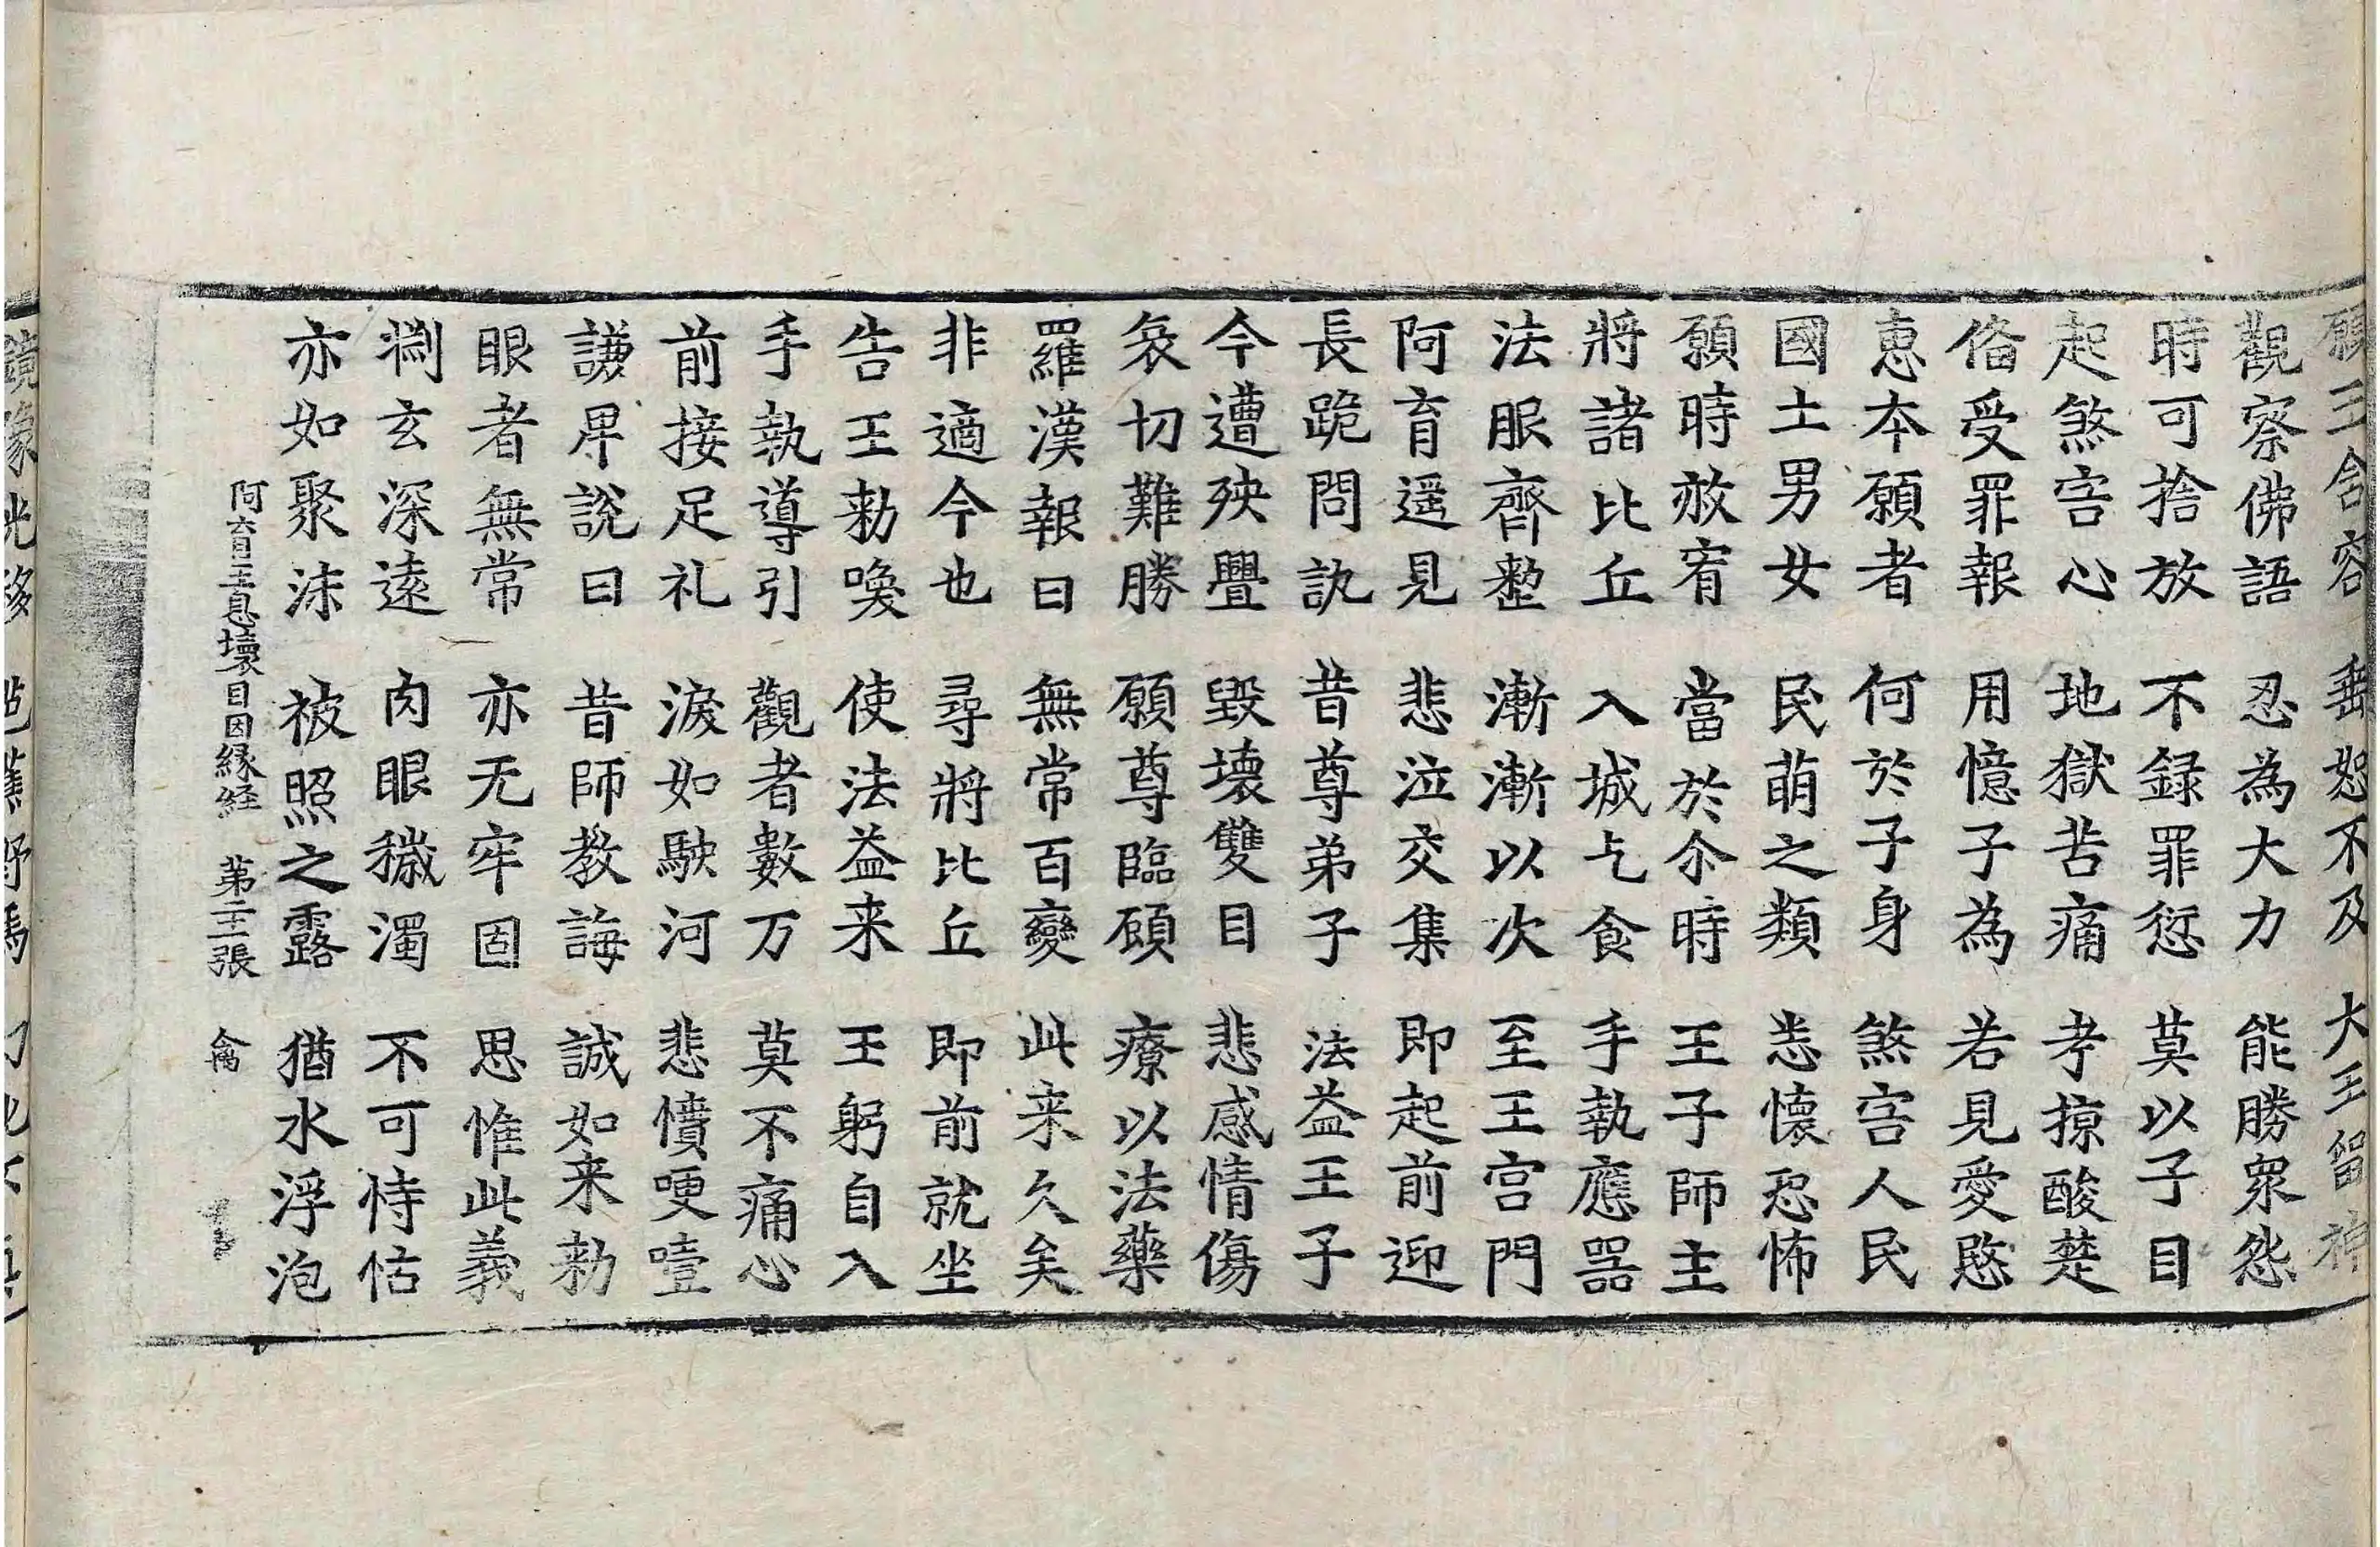 願王含容 垂恕不及 大王留神
觀察佛語 忍為大力 能勝衆怨
時可捨放 不録罪愆 莫以子目
起煞害心 地獄苦痛 考掠酸楚
俻受罪報 用憶子為 若見愛愍
惠本願者 何於子身 煞害人民
國土男女 民萌之類 恙懷恐怖
願時赦宥 當於尒時 王子師主
將諸比丘 入城乞食 手執應器
法服齊整 漸漸以次 至王宫門
阿育遥見 悲泣交集 即起前迎
長跪問訊 昔尊弟子 法益王子
今遭殃舋 毀壞雙目 悲感情傷
哀切難勝 願尊臨顧 療以法藥
羅漢報曰 無常百變 此来久矣
非適今也 尋將比丘 即前就坐
告王勑喚 使法益来 王躬自入
手執導引 觀者數万 莫不痛心
前接足礼 淚如駛河 悲憒哽噎
謙卑說曰 昔師教誨 誠如来勑
眼者無常 亦无牢固 思惟此義
剬玄深遠 肉眼穢濁 不可恃怙
亦如聚沫 被照之露 猶水浮泡
阿育王息壞目因縁経 第二十三張 禽